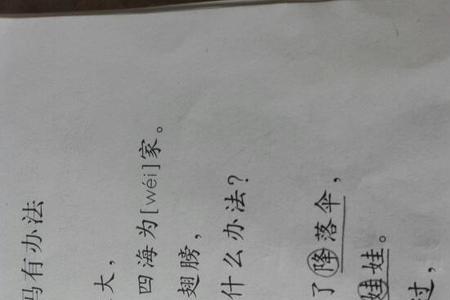 有办法
大，
四海为[wéi]家。
翅膀，
什么办法？
了降落伞，
娃娃。
过，